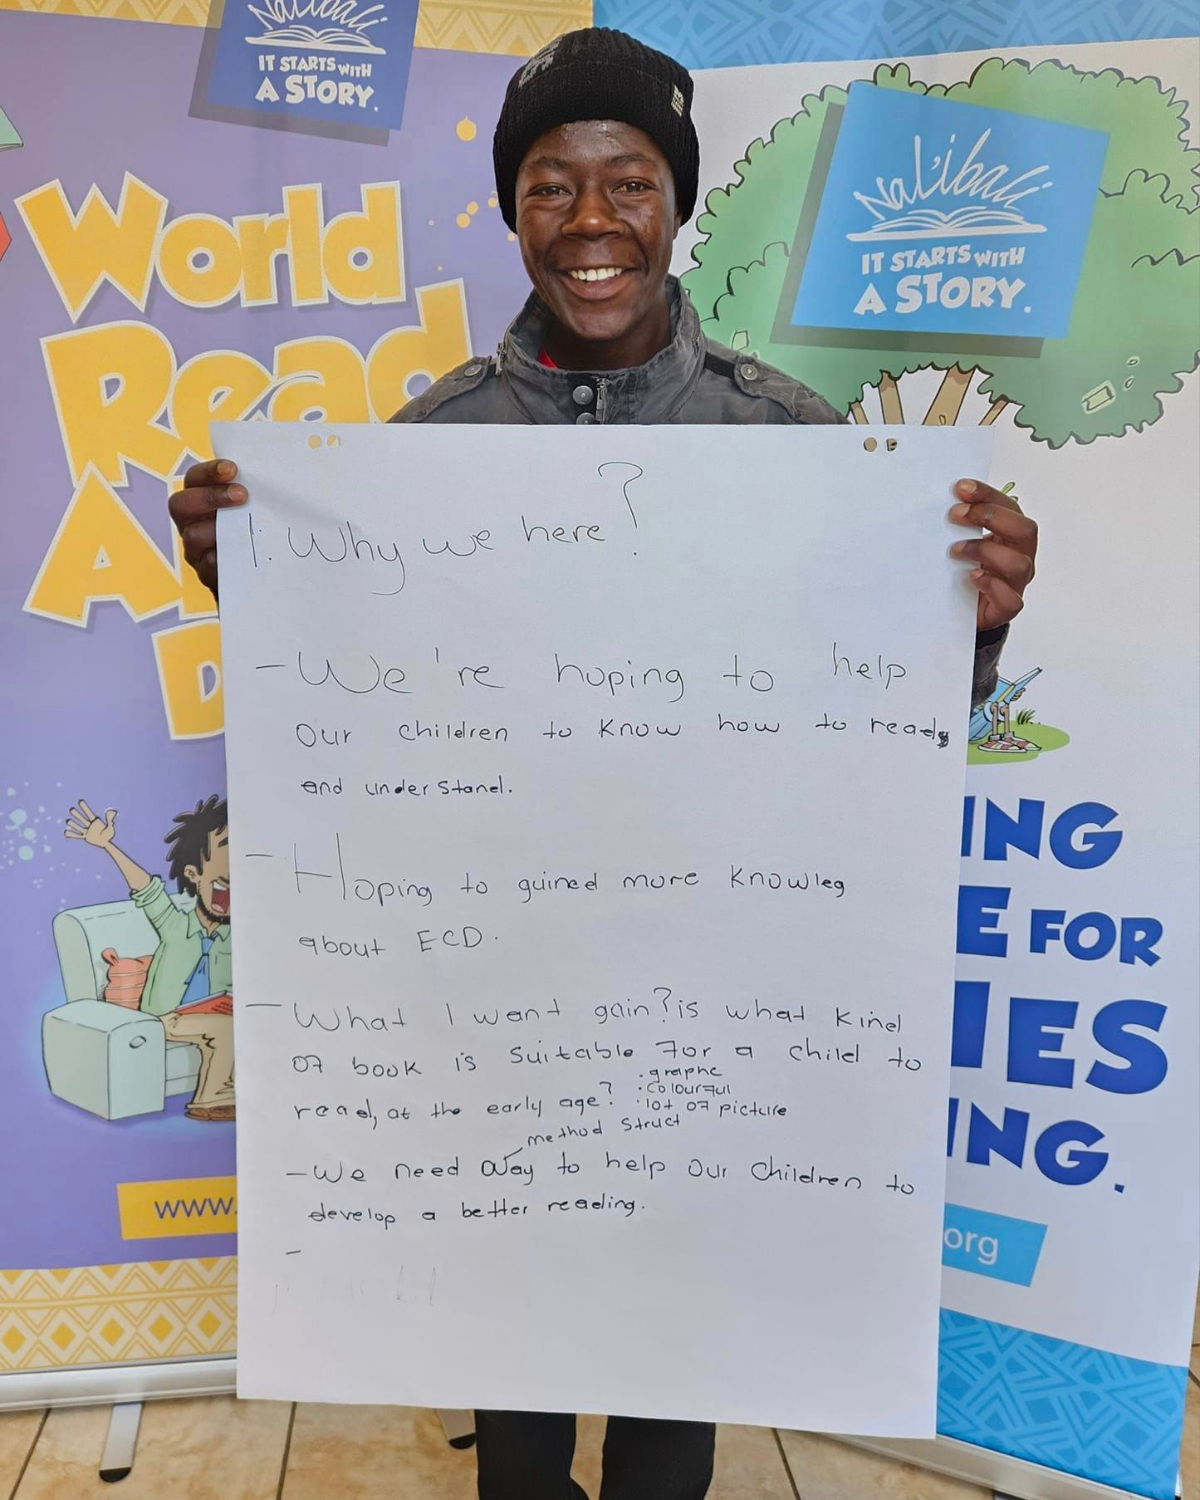 Nal'ibali
IT STARTS WITH
A STORY.
World
Read
A
D
www.
Nal'ibali
IT STARTS WITH
A STORY.
ING
E FOR
IES
ING.
org
1. Why we here?
- We're hoping to help
our children to know how to read
and understand.
- Hoping to guined more knowleg
about ECD.
- What I want gain? is what kind
of book is suitable for a child to
read, at the early age?
· graphe
· colourful
· lot of picture
method struct
- We need way to help our children to
develop a better reading.
-